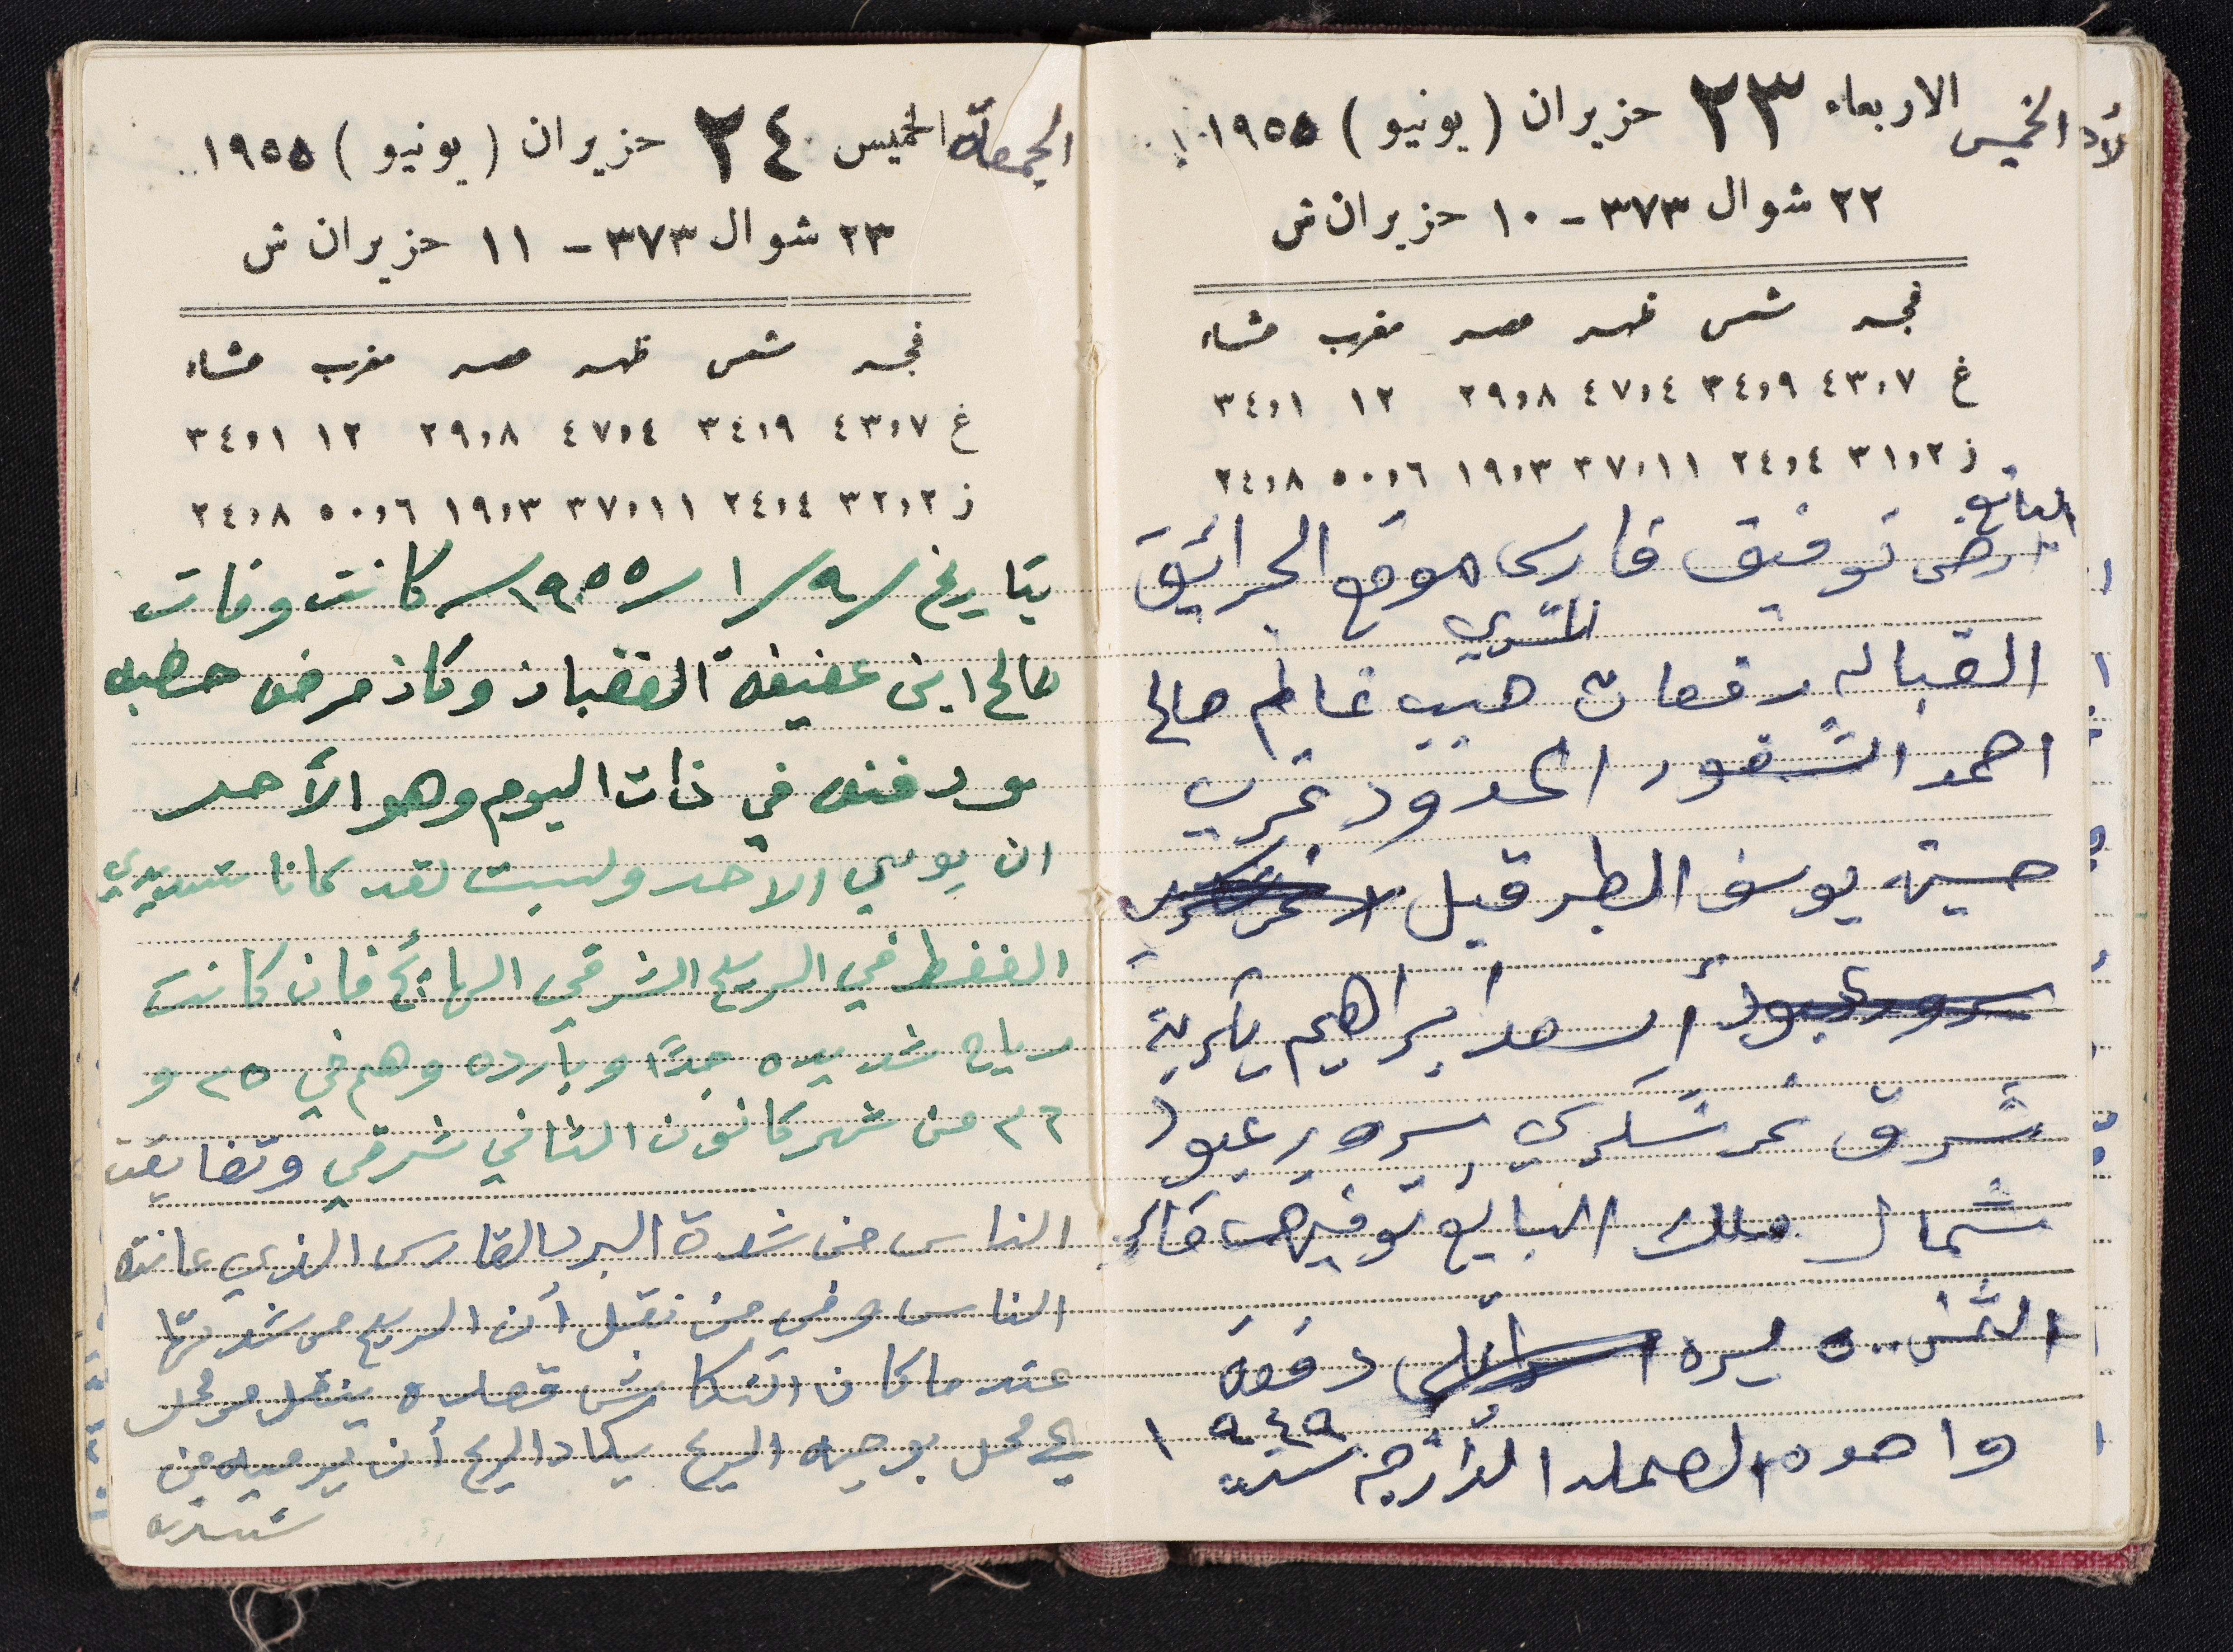 الخميس الاربعاء ٢٣ حزيران (يونيو) ١٩٥٥
٢٢ شوال ٣٧٣ - ١٠ حزيران ش
فجر شمس ظهر عصر مغرب عشاء
غ ٤٣،٧ ٣٤،٩ ٤٧،٤ ٢٩،٨ ١٢ ٣٤،١
ز ٣١،٢ ٢٤،٤ ٣٧،١١ ١٩،٣ ٥٠،٦ ٢٤،٨
البائع
ارض توفيق فارس موقع الحرائق
المشتري
القباله رفعات هيب غانم صالح
احمد الشقور الحدود غرب
حسين يوسف الطبر قبل
أسعد ابراهيم بكرية
شرق نمر شكري سرور عبود
شمال ملك البايع توفيق فارس
الثمن ٥٠٠ ليره دفعة
واحده العمله الدارجه سنة ١٩٤٩
الجمعة الخميس ٢٤ حزيران (يونيو) ١٩٥٥
٢٣ شوال ٣٧٣ - ١١ حزيران ش
فجر شمس ظهر عصر مغرب عشاء
غ ٤٣،٧ ٣٤،٩ ٤٧،٤ ٢٩،٨ ١٢ ٣٤،١
ز ٣٢،٢ ٢٤،٤ ٣٧،١١ ١٩،٣ ٥٠،٦ ٢٤،٨
بتاريخ ٩/١/١٩٥٥ كانت وفات
صالح ابن عفيفة الغضبان وكان مرض حصبه
ودفنه في ذات اليوم وهو الأحد
ان يومي الاحد ولسبت لقد كانا شديدي
الضغط في الريح الشرقي الهائج فان كانت
رياح شديده جدًا وبارده وهم في ٢٥ و
٢٦ من شهر كانون الثاني شرقي وتضايقت
الناس من شدة البرد القارس الذي عانته
الناس ومن نقل أن الريح من شدتها
عندما كان قصله ينقل من محل
الى محل بوجه الريح يكاد الريح أن يرميه من
شدته